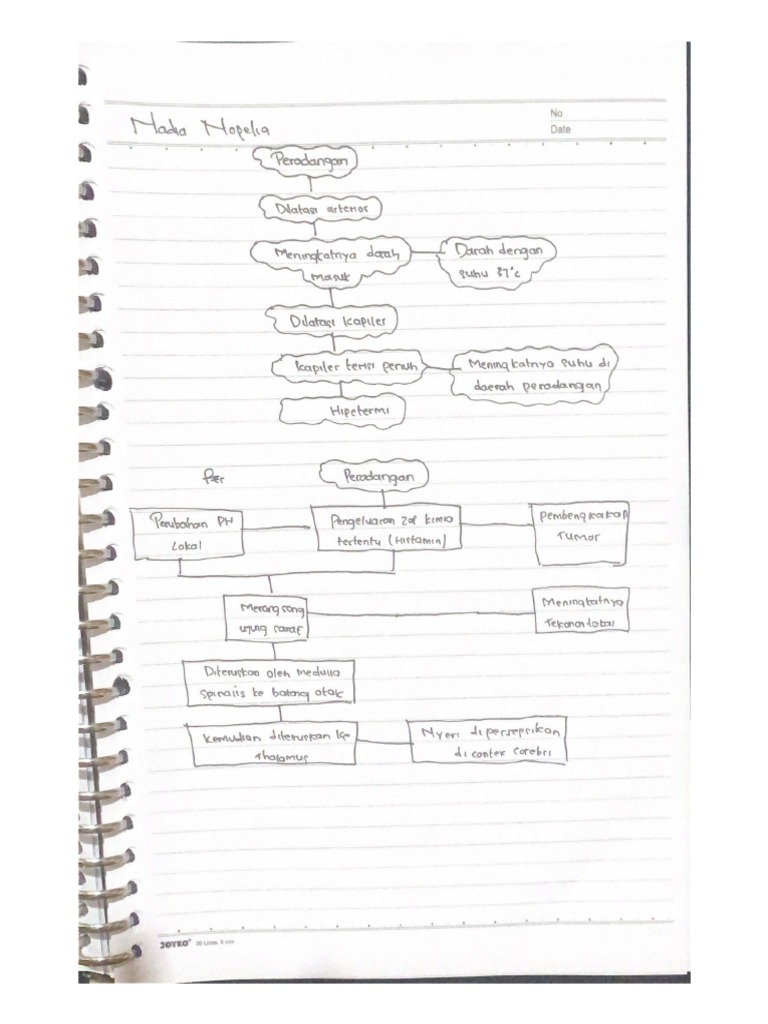 No
Nadia Nopelia
Date
Peradangan
Dilatasi arterior
Meningkatnya darah
masuk
Darah dengan
suhu 37°c
Dilatasi kapiler
kapiler terisi penuh
Meningkatnya suhu di
daerah peradangan
Hipetermi
Per
Peradangan
Perubahan PH
Lokal
Pengeluaran zat kimia
tertentu (Histamin)
Pembengkakan
Tumor
Merangsang
ujung saraf
Meningkatnya
Tekanan lokal
Diteruskan oleh medulla
spinalis ke batang otak
Kemudian diteruskan ke
thalamus
Nyeri dipersepsikan
di contex cerebri
JOYKO